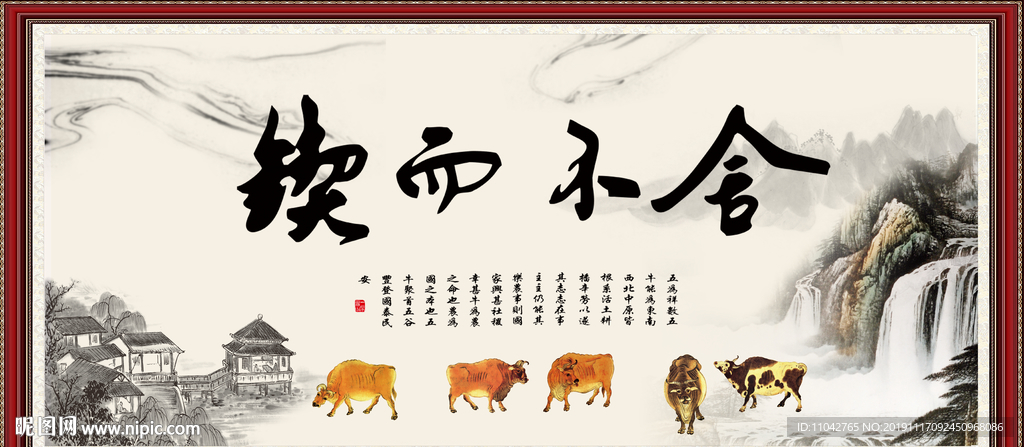 锲而不舍
五為祥數五
牛能為東南
西北中原皆
根系活土耕
播辛勞以遂
其志志在事
主主仍能其
樂農事則國
家興甚社稷
幸甚牛為農
之命也農為
國之本也五
牛聚首五谷
豐登國泰民
安
昵图网 www.nipic.com
ID:11042765 NO:20191117092450968086